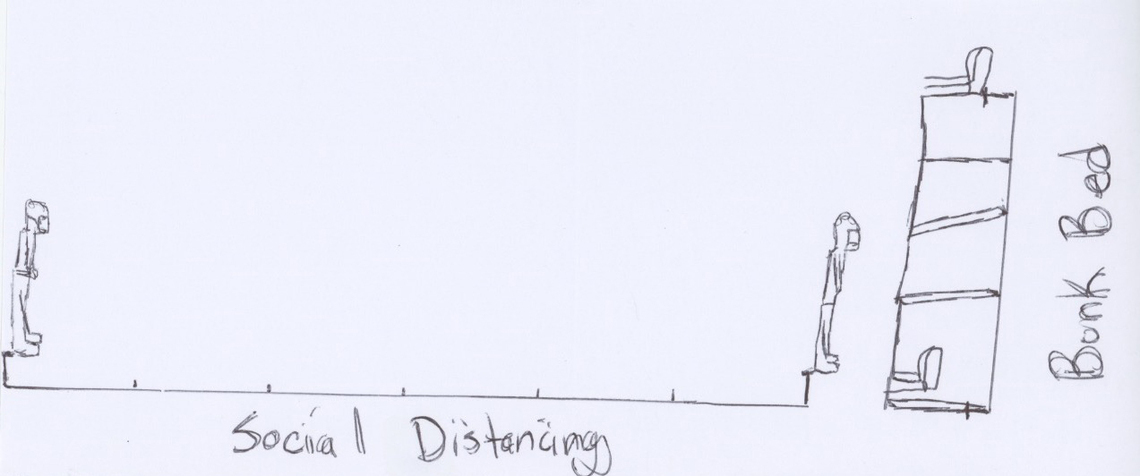 Social Distancing
Bunk Bed